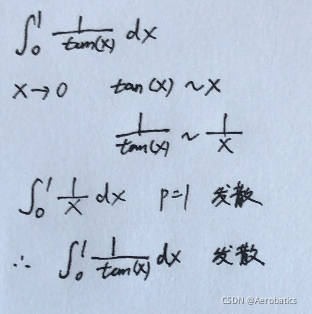 ∫₀¹ 1/tan(x) dx
x→0 tan(x) ~ x
1/tan(x) ~ 1/x
∫₀¹ 1/x dx p=1 发散
∴ ∫₀¹ 1/tan(x) dx 发散
CSDN @Aerobatics